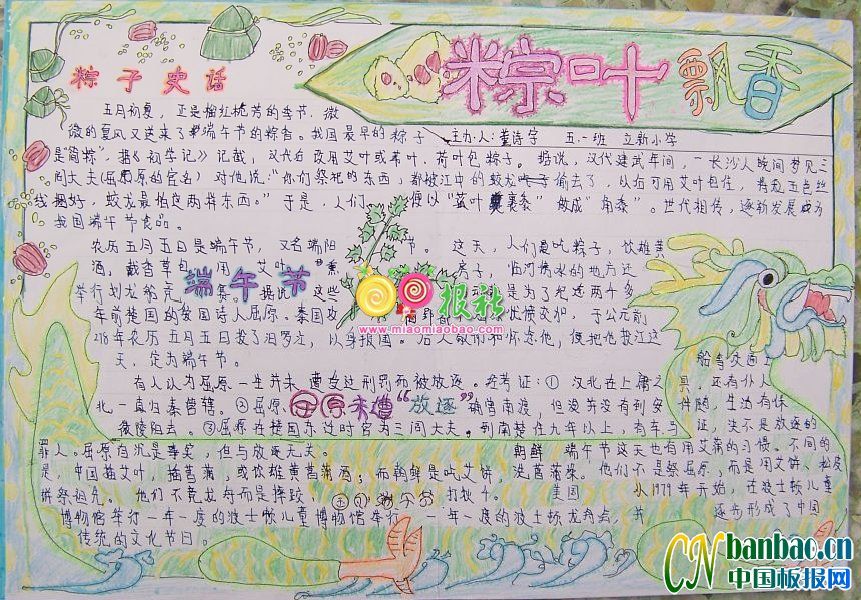 粽叶飘香
粽子史话
五月初夏，正是榴红桃芳的季节，微
微的夏风又送来了端午节的粽香。我国最早的粽子
主办人：董诗宇 五.一班 立新小学
是"筒粽"，据《初学记》记载，汉代白 改用艾叶或 叶、荷叶包粽子。据说，汉代建武年间，一长沙人晚间梦见三
闾大夫（屈原的官名）对他说："你们祭祀的东西，都被江中的蛟龙偷去了，以后可用艾叶包住，将五色丝
线捆好，蛟龙最怕这两样东西。"于是，人们 便以"菰叶裹黍"做成"角黍"。世代相传，逐渐发展成为
我国端午节食品。
端午节
农历五月五日是端午节，又名端阳 节。这天，人们是吃粽子，饮雄黄
酒，戴香草包，用 艾叶 熏 房子，临河傍水的地方还
举行划龙船竞 赛。据说 这些 是为了纪念两千多
年前楚国的爱国诗人屈原。 国攻 忧愤交加，于公元前
278年农历五月五日投了汨罗江，以身报国。后人敬仰和怀念他，便把他投江这
天，定为端午节。
屈原未遭"放逐"
有人认为屈原一生并未 遭女这刑罚而被放逐。经考证：① 汉北在上庸之 县，还有仆人
北一直归秦管辖。②屈原 确曾南渡，但没并没有到安 伴随，生活有保
徽陵阳去。③屈原在楚国东迁时官为三闾大夫。到南楚住九年以上，有车马 证，决不是放逐的
罪人。屈原自沉是事实，但与放逐无关。
朝鲜 端午节这天也有用艾蒲的习惯。不同的
是，中国插艾叶，插菖蒲，或饮雄黄菖蒲酒；而朝鲜是吃艾饼，洗菖蒲澡。他们不是祭屈原，而是用艾饼、松皮
饼祭祖先。他们不竞龙舟而是摔跤、 打秋千。
美国 从1979年开始，在波士顿儿童
博物馆举行一年一度的波士顿儿童博物馆举行一 年一度的波士顿龙舟会，并 逐步形成了中国
传统的文化节日。
报社
www.miaomiaobao.com
CN banbao.cn
中国板报网